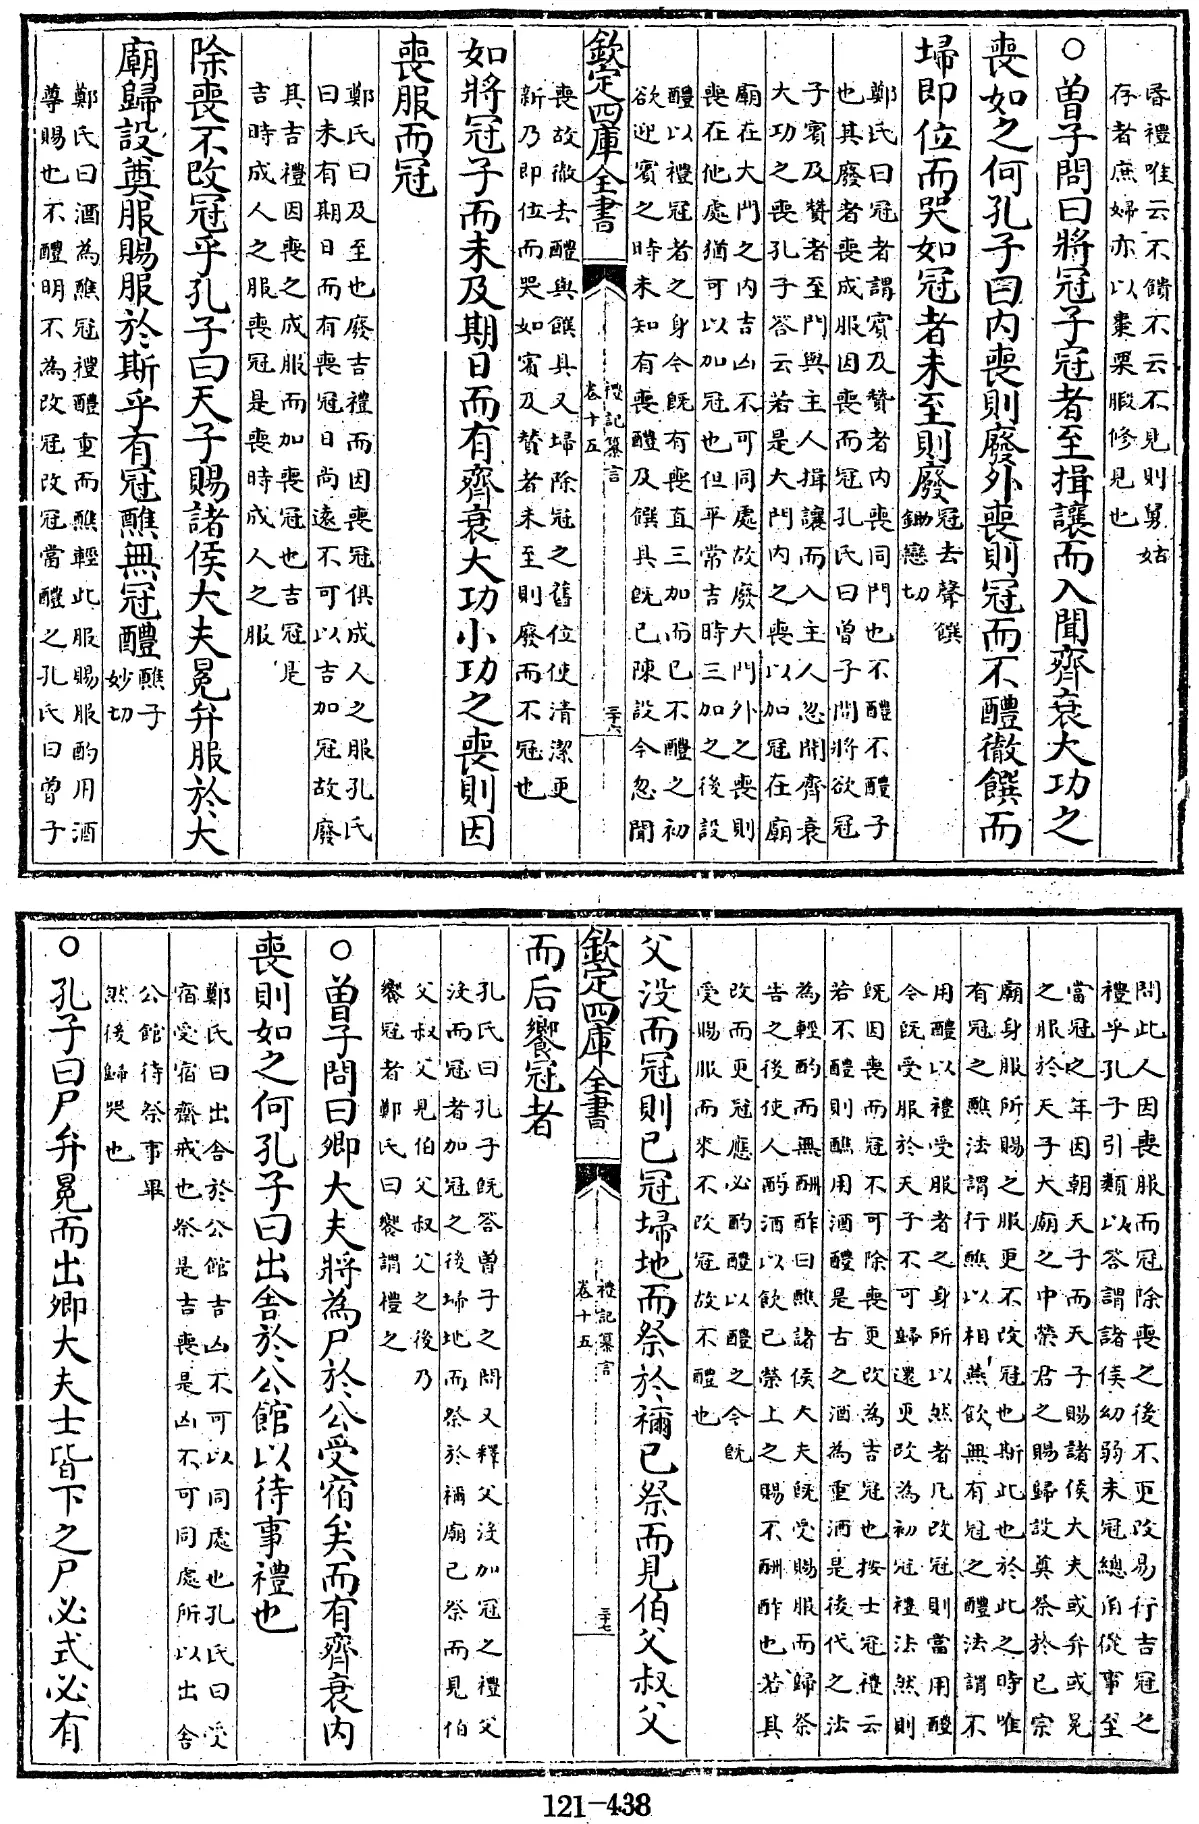 昏禮唯云不饋不云不見則舅姑
存者庶婦亦以棗栗腶修見也
○曾子問曰將冠子冠者至揖讓而入聞齊衰大功之
喪如之何孔子曰内喪則廢外喪則冠而不醴徹饌而
埽即位而哭如冠者未至則廢
冠去聲饌
鋤戀切
鄭氏曰冠者謂賓及贊者内喪同門也不醴不醴子
也其廢者喪成服因喪而冠孔氏曰曾子問將欲冠
子賓及贊者至門與主人揖讓而入主人忽聞齊衰
大功之喪孔子答云若是大門内之喪以加冠在廟
廟在大門之内吉凶不可同處故廢大門外之喪則
喪在他處猶可以加冠也但平常吉時三加之後設
醴以禮冠者之身今既有喪直三加而已不醴之初
欲迎賓之時未知有喪醴及饌具既已陳設今忽聞
欽定四庫全書
禮記纂言
卷十五
三十六
喪故徹去醴與饌具又埽除冠之舊位使清潔更
新乃即位而哭如賓及贊者未至則廢而不冠也
如將冠子而未及期日而有齊衰大功小功之喪則因
喪服而冠
鄭氏曰及至也廢吉禮而因喪冠俱成人之服孔氏
曰未有期日而有喪冠日尚遠不可以吉加冠故廢
其吉禮因喪之成服而加喪冠也吉冠是
吉時成人之服喪冠是喪時成人之服
除喪不改冠乎孔子曰天子賜諸侯大夫冕弁服於大
廟歸設奠服賜服於斯乎有冠醮無冠醴
醮子
妙切
鄭氏曰酒為醮冠禮醴重而醮輕此服賜服酌用酒
尊賜也不醴明不為改冠改冠當醴之孔氏曰曾子
問此人因喪服而冠除喪之後不更改易行吉冠之
禮乎孔子引類以答謂諸侯幼弱未冠總角從事至
當冠之年因朝天子而天子賜諸侯大夫或弁或冕
之服於天子大廟之中榮君之賜歸設奠祭於已宗
廟身服所賜之服更不改冠也斯此也於此之時唯
有冠之醮法謂行醮以相燕飲無有冠之醴法謂不
用醴以禮受服者之身所以然者凡改冠則當用醴
今既受服於天子不可歸還更改為初冠禮法然則
既因喪而冠不可除喪更改為吉冠也按士冠禮云
若不醴則醮用酒醴是古之酒為重酒是後代之法
為輕酌而無酬酢曰醮諸侯大夫既受賜服而歸祭
告之後使人酌酒以飲已榮上之賜不酬酢也若其
改而更冠應必酌醴以醴之今既
受賜服而來不改冠故不醴也
父没而冠則已冠埽地而祭於禰已祭而見伯父叔父
欽定四庫全書
禮記纂言
卷十五
三十七
而后饗冠者
孔氏曰孔子既答曾子之問又釋父没加冠之禮父
没而冠者加冠之後埽地而祭於禰廟已祭而見伯
父叔父見伯父叔父之後乃
饗冠者鄭氏曰饗謂禮之
○曾子問曰卿大夫將為尸於公受宿矣而有齊衰内
喪則如之何孔子曰出舍於公館以待事禮也
鄭氏曰出舍於公館吉凶不可以同處也孔氏曰受
宿受宿齋戒也祭是吉喪是凶不可同處所以出舍
公館待祭事畢
然後歸哭也
○孔子曰尸弁冕而出卿大夫士皆下之尸必式必有
121-438